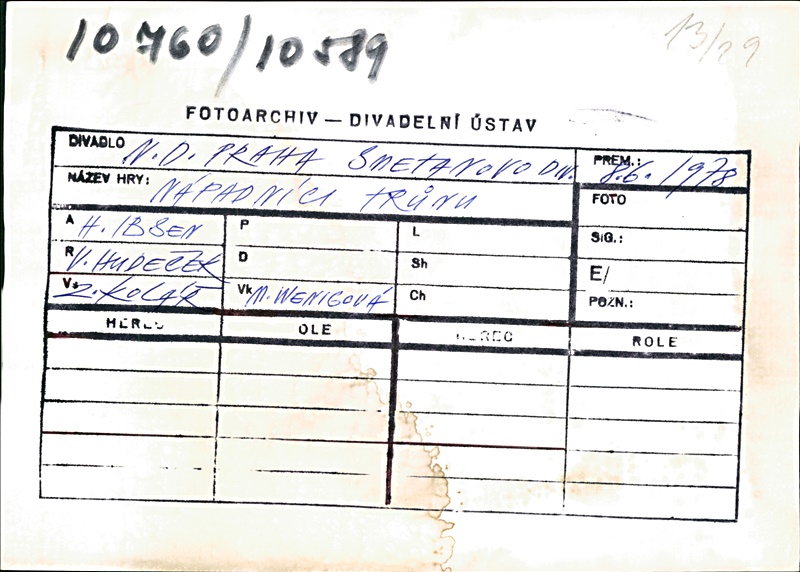 10760/10589
13/29
FOTOARCHIV — DIVADELNÍ ÚSTAV
DIVADLO N.D. PRAHA SMETANOVO DIV.
PREM.: 8.6. 1978
NÁZEV HRY: NÁPADNÍCI TRŮNU
FOTO
A H. IBSEN
P
L
SIG.:
R V. HUDEČEK
D
Sh
E/
Vs Z. KOLÁŘ
Vk M. WENIGOVÁ
Ch
POZN.:
HEREC OLE HEREC ROLE